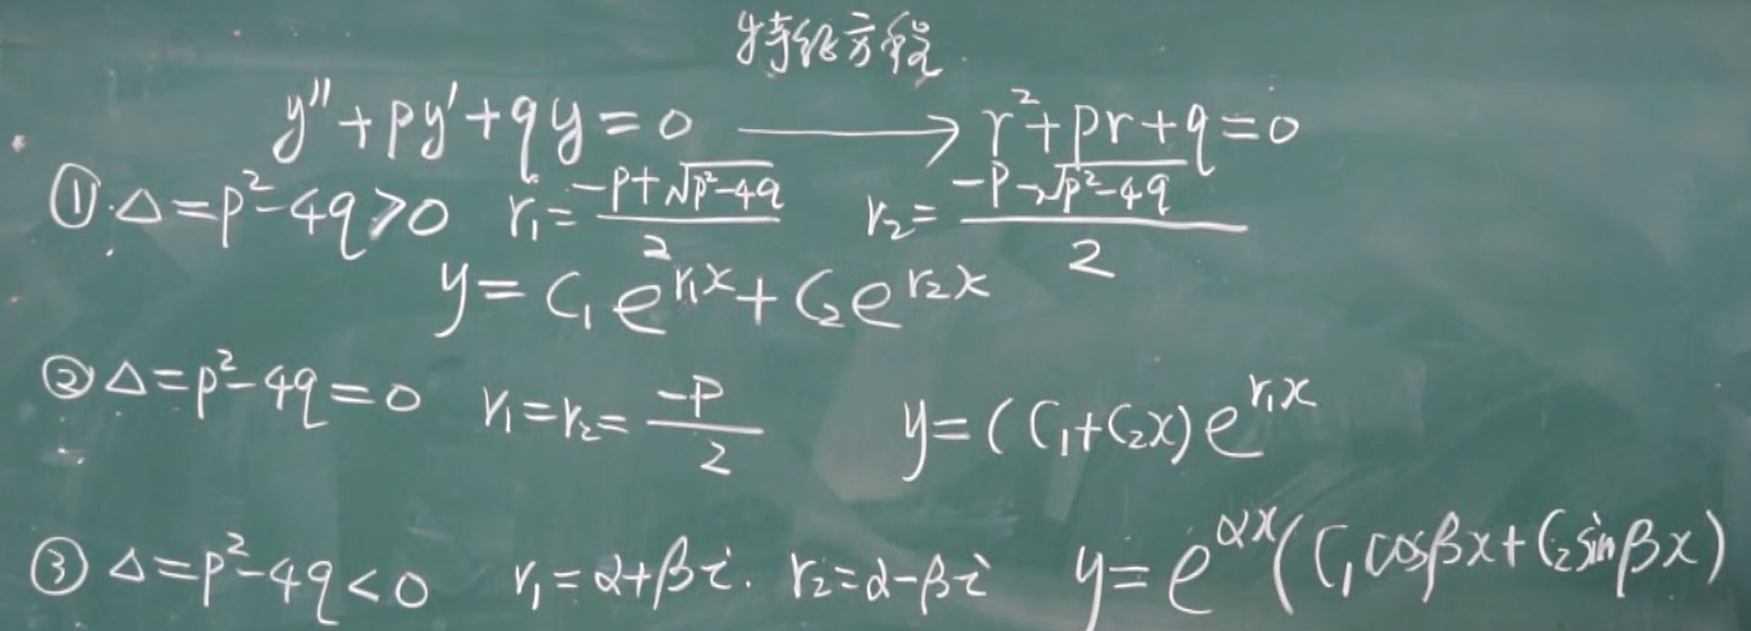 特征方程
y''+py'+qy=0 ⟶ r²+pr+q=0
① Δ=p²-4q>0 r₁=(-p+√(p²-4q))/2 r₂=(-p-√(p²-4q))/2
y=C₁e^(r₁x)+C₂e^(r₂x)
② Δ=p²-4q=0 r₁=r₂=(-p)/2 y=(C₁+C₂x)e^(r₁x)
③ Δ=p²-4q<0 r₁=α+βi. r₂=α-βi y=e^(αx)(C₁cosβx+C₂sinβx)